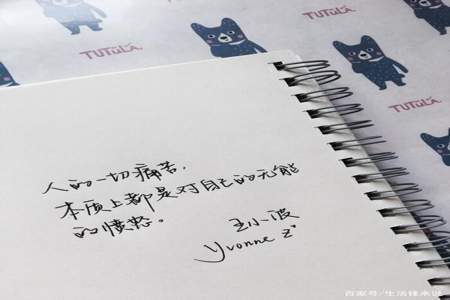 TUTULA
TUTULA
TUTULA
人的一切痛苦，
本质上都是对自己的无能
的愤怒。
王小波
Yvonne Z
百家号/生活锋来说